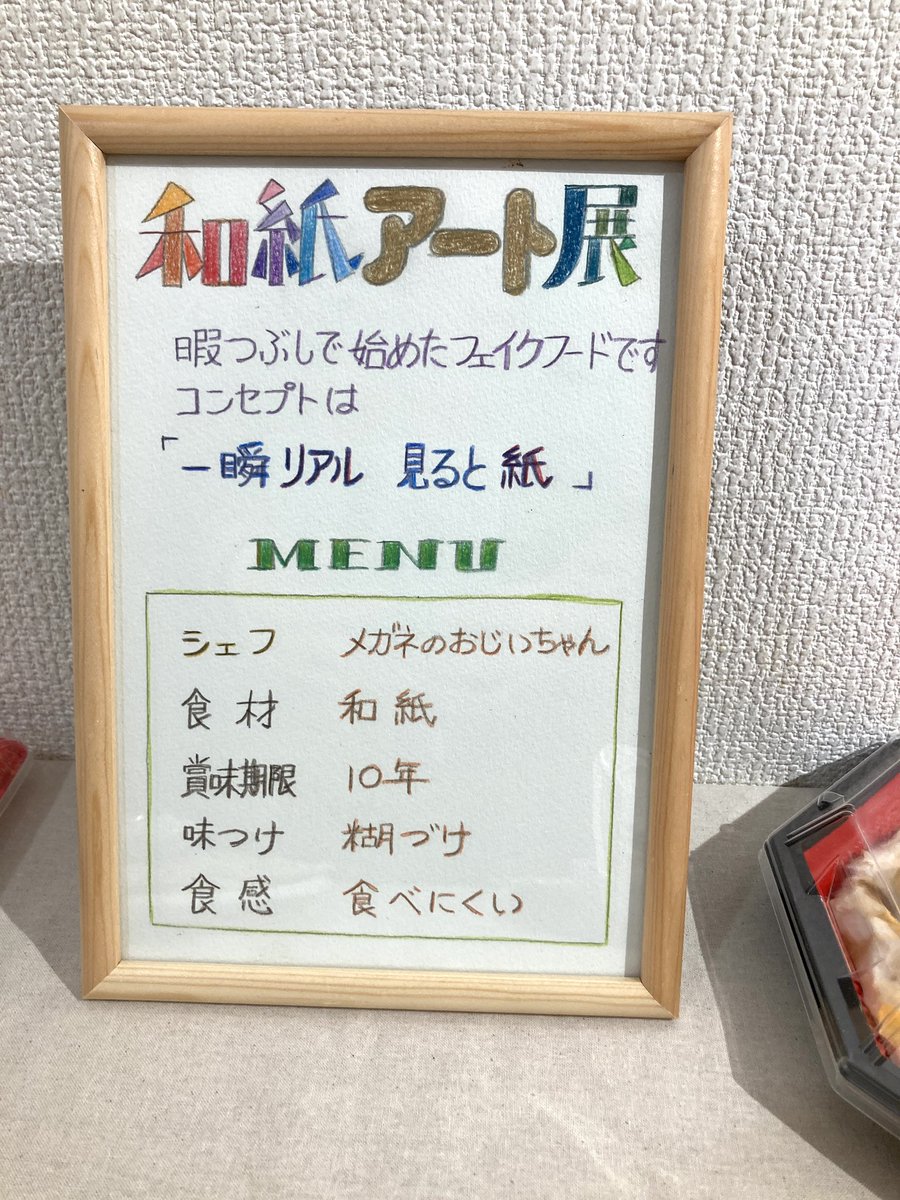 和紙アート展
暇つぶしで始めたフェイクフードです
コンセプトは
「一瞬リアル 見ると紙」
MENU
シェフ メガネのおじいちゃん
食材 和紙
賞味期限 10年
味つけ 糊づけ
食感 食べにくい